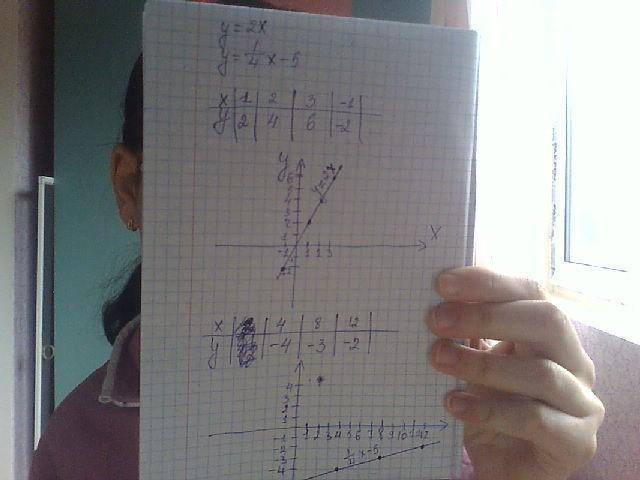 y = 2x
y = 1/4 x - 5
x | 1 | 2 | 3 | -1 |
y | 2 | 4 | 6 | -2 |
y
6
5
4
3
2
1
y=2x
x
-1 1 2 3
x | 4 | 8 | 12 |
y | -4 | -3 | -2 |
4
3
2
1
1 2 3 4 5 6 7 8 9 10 11 12
-1
-2
-3
-4
1/4 x - 5